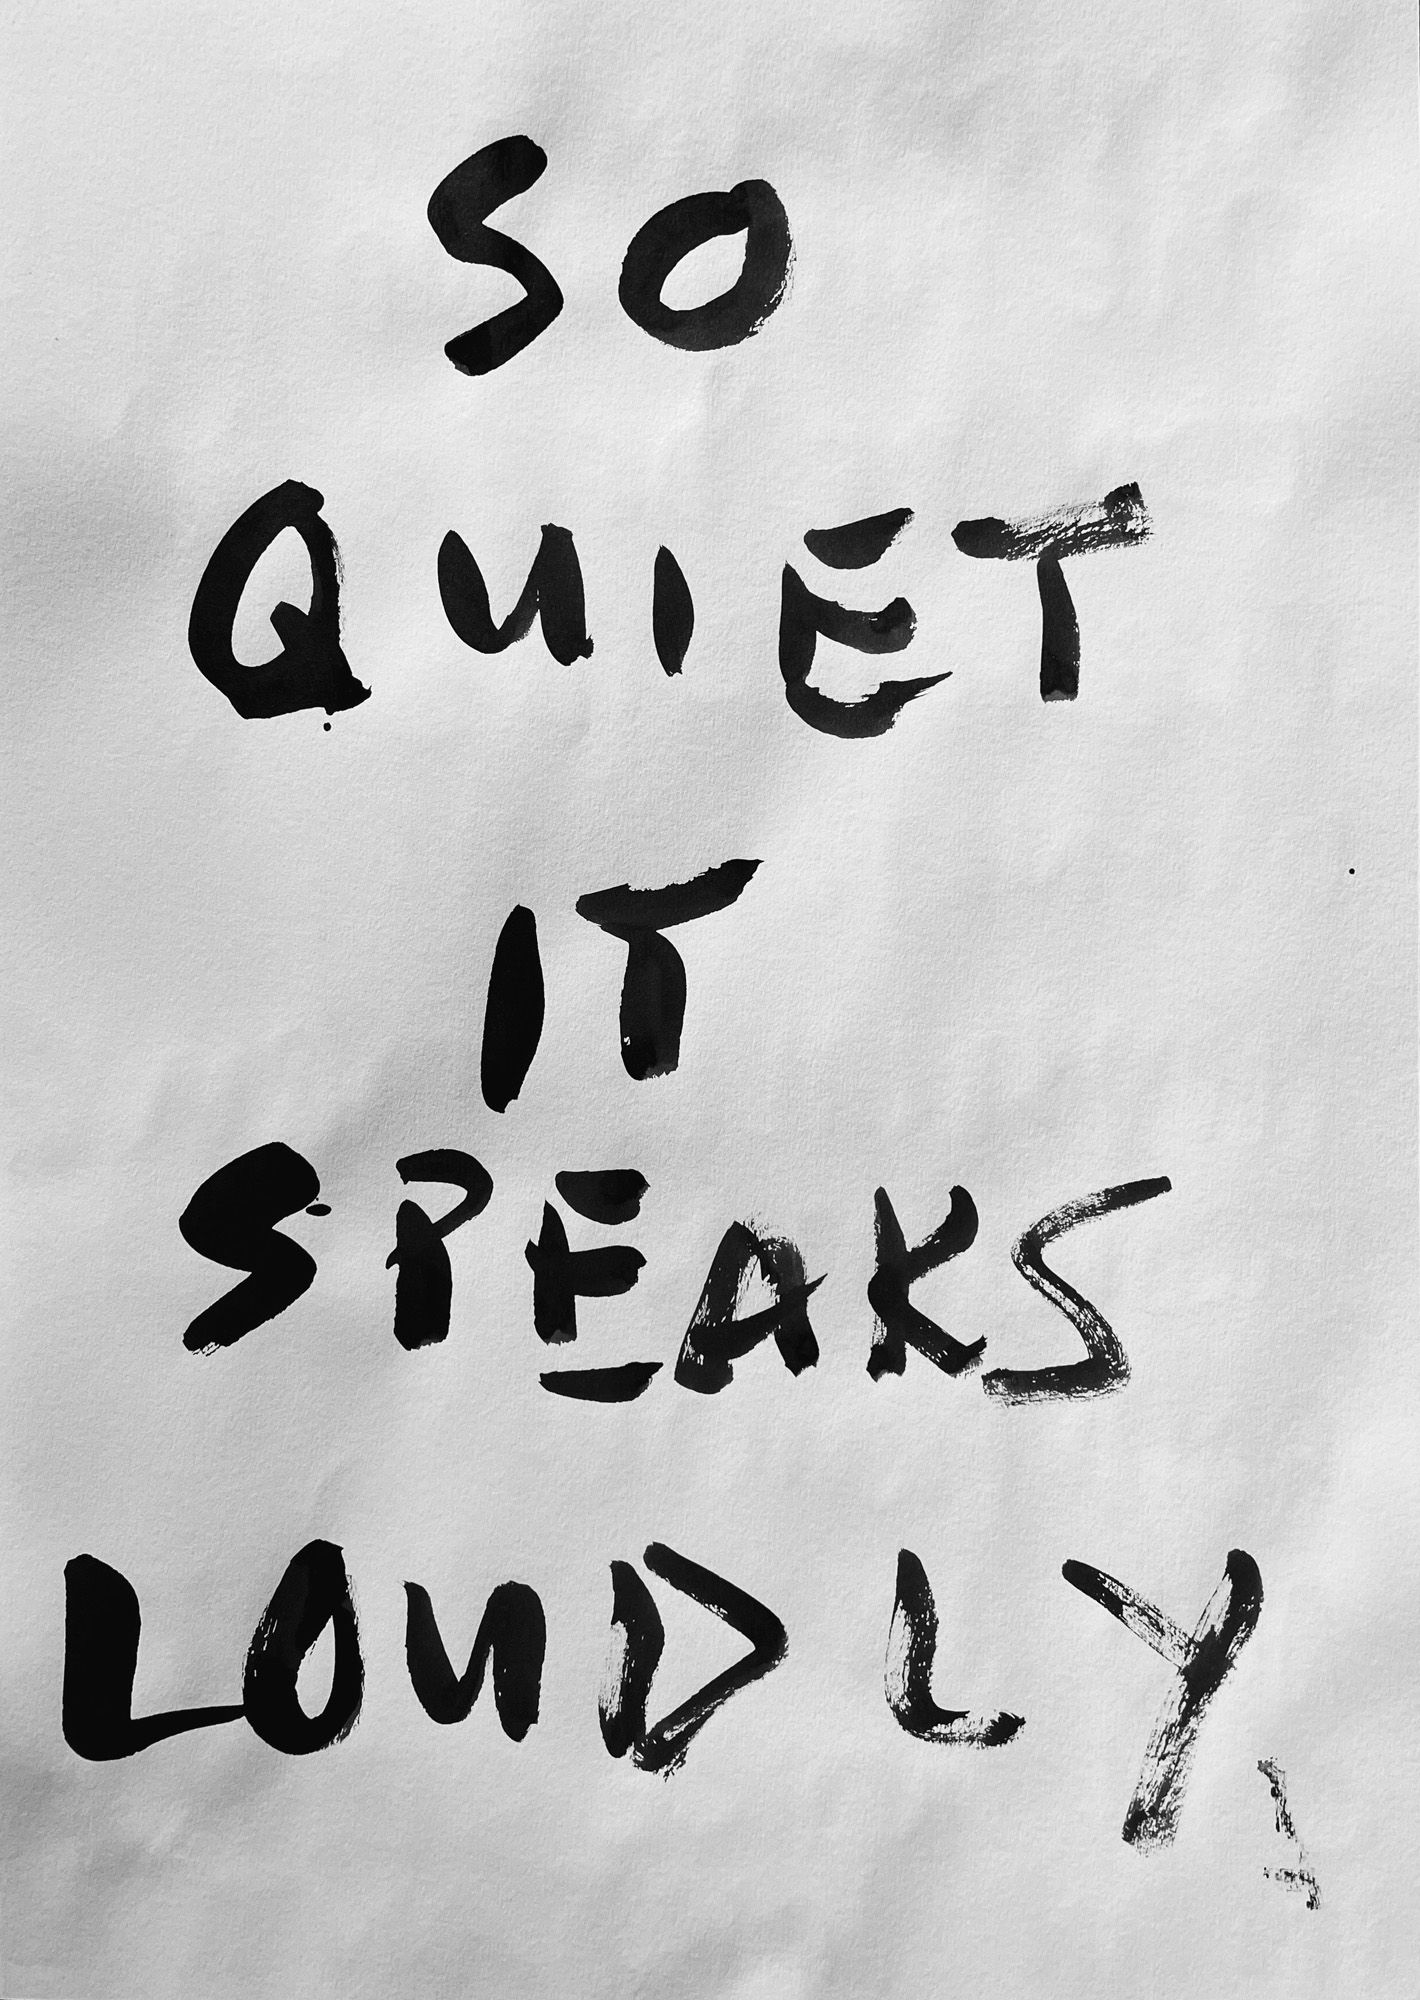 SO
QUIET
IT
SPEAKS
LOUDLY